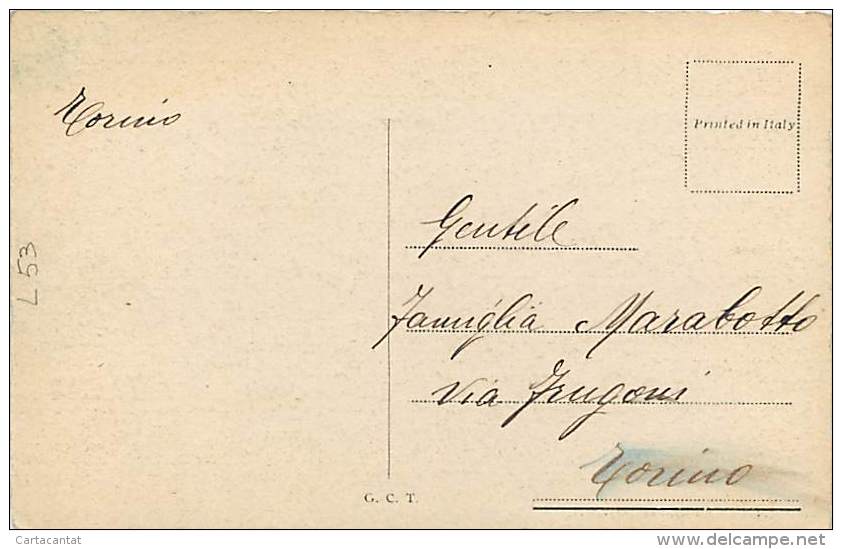 Torino
Printed in Italy
L 53
Gentile
Famiglia Marabotto
Via Frugoni
Torino
G. C. T.
Cartacantat
www.delcampe.net